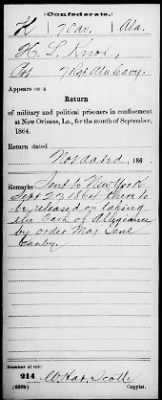 Confederate.
K 7 Cav. Ala.
H. L. Knox
Pvt 7 Regt Ala Cavy.
Appears on a
Return
of military and political prisoners in confinement
at New Orleans, La., for the month of September,
1864.
Return dated
Not dated, 186
Remarks Sent to New York
Sept 27 1864 there to
be released on taking
the Oath of Allegiance
by order Maj Genl
Canby.
Number of roll:
214
Scott
Copyist.